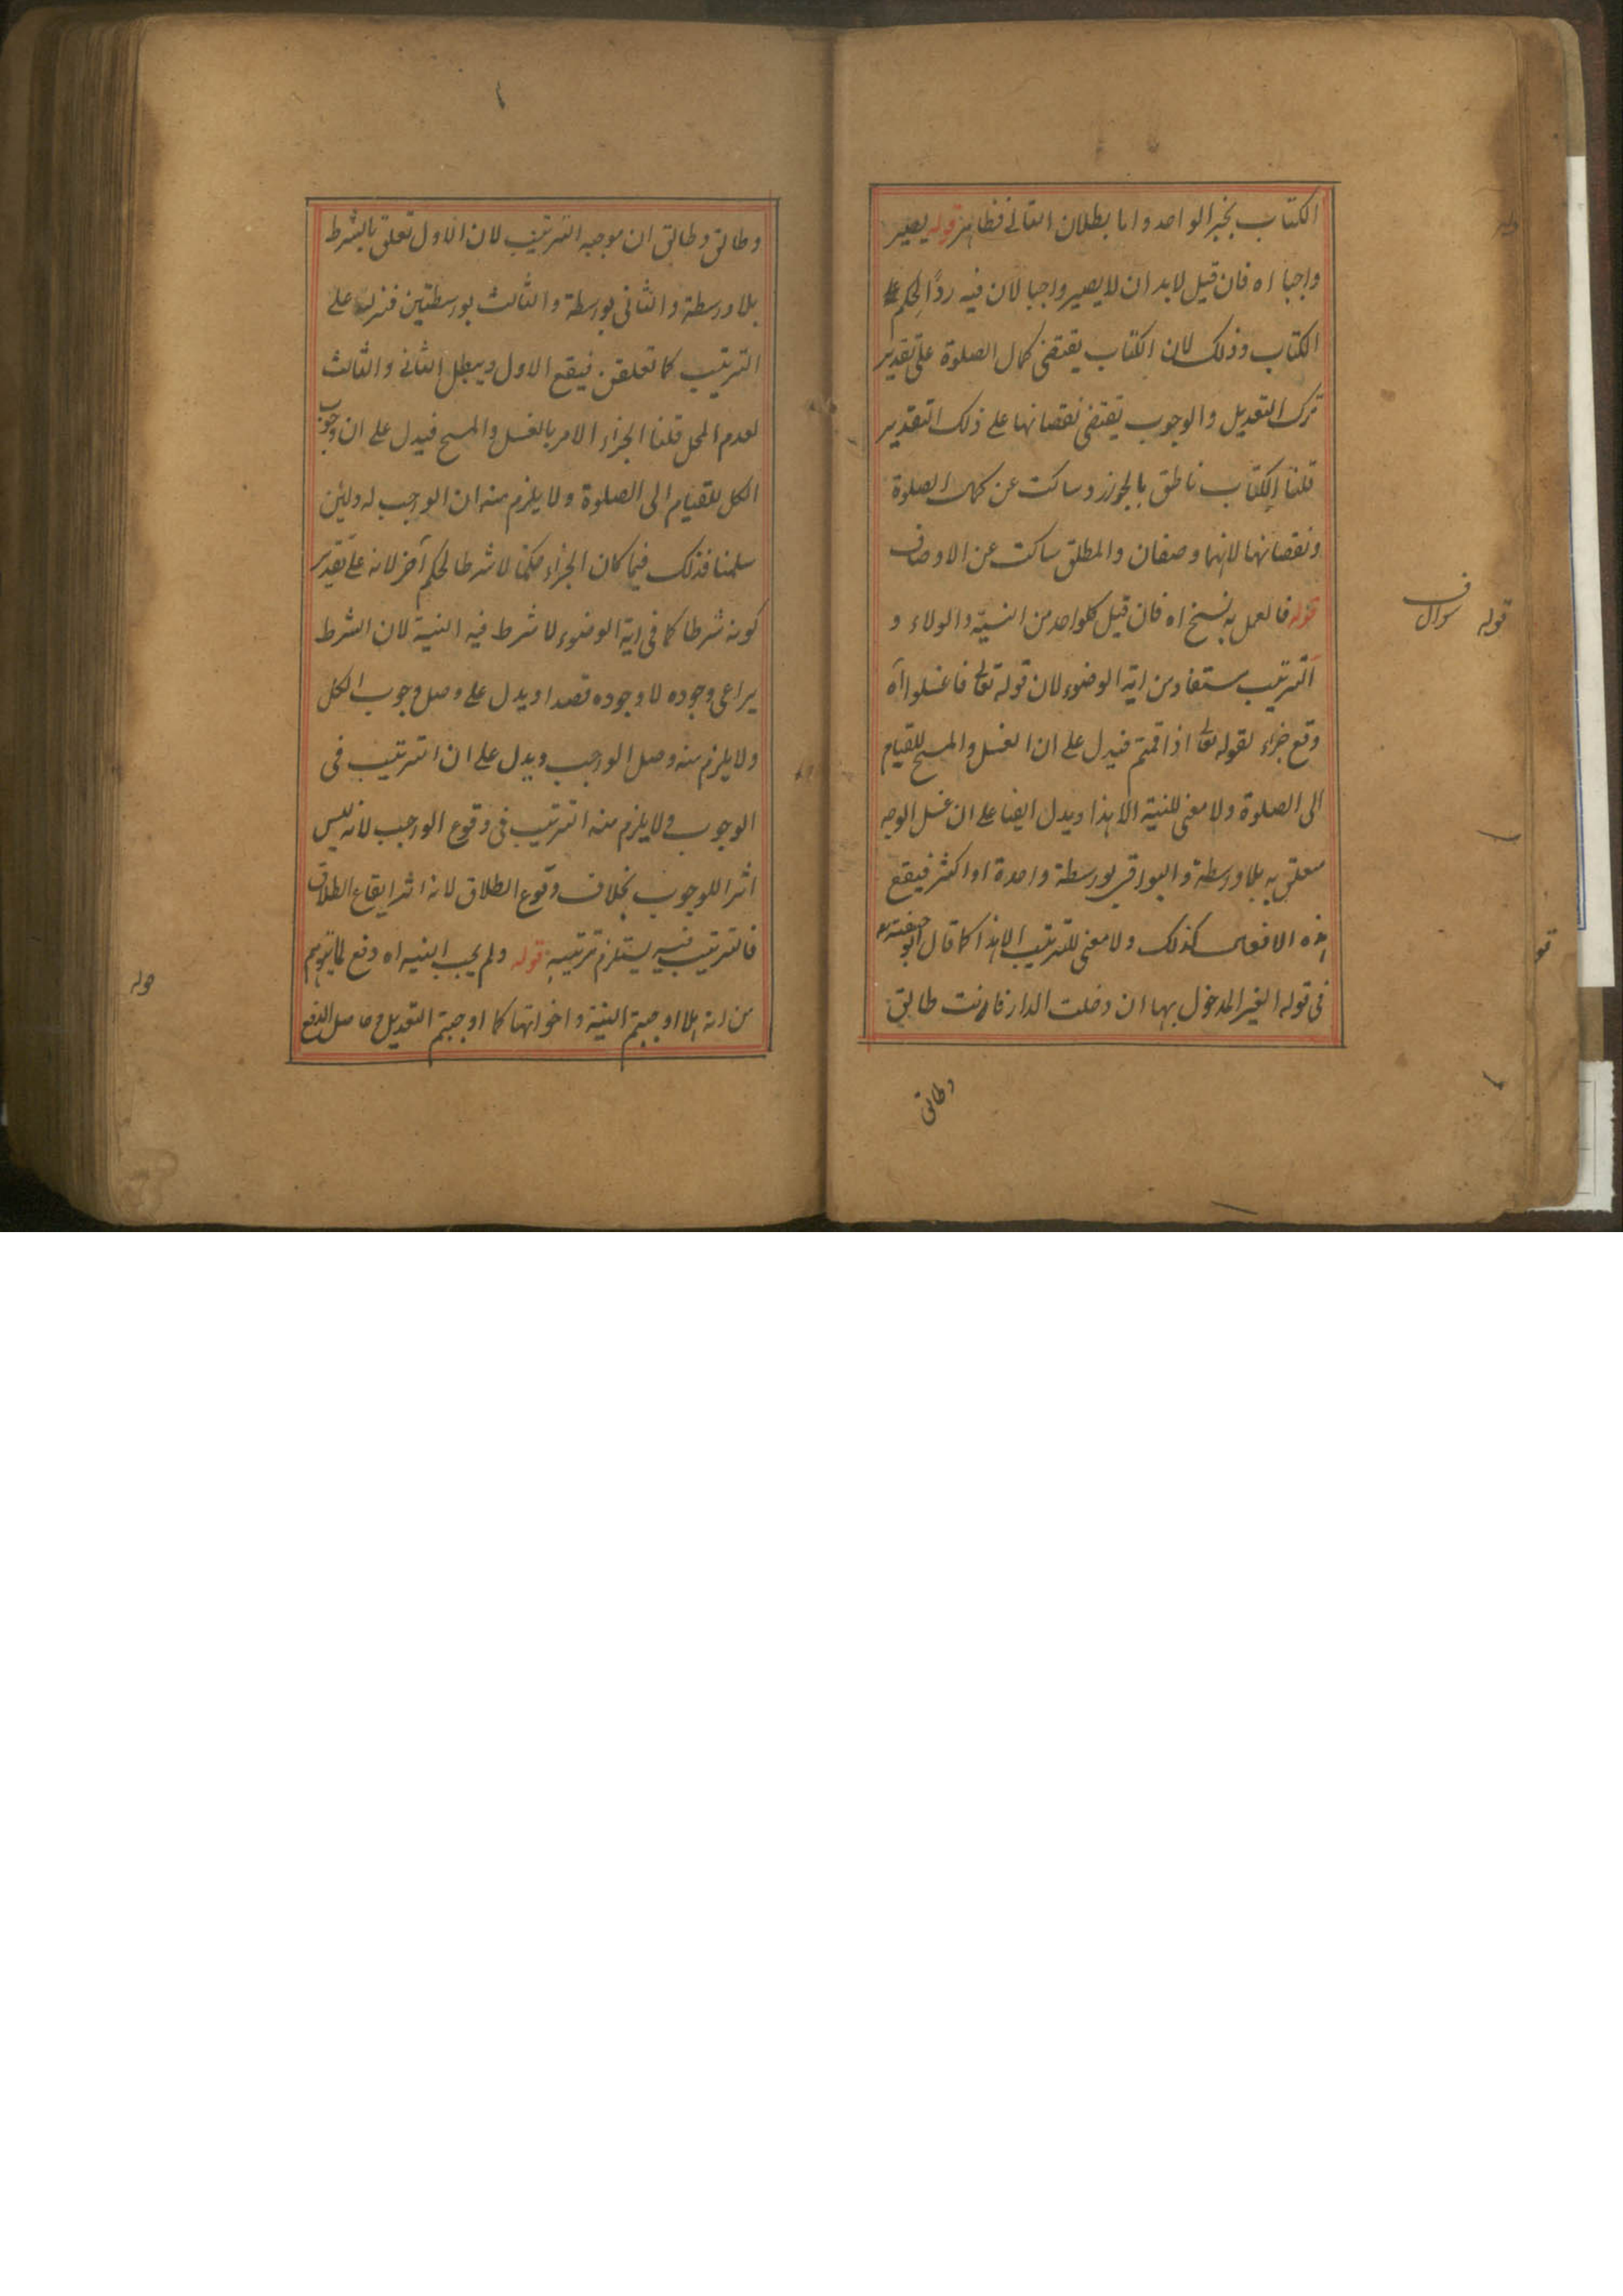 الكتاب بخبر الواحد واما بطلان التالى فظاهر قوله يصير
واجبا اه فان قيل لابد ان لا يصير واجبا لان فيه ردّا لحكم
الكتاب وذلك لان الكتاب يقتضى كمال الصلوة على تقدير
ترك التعديل والوجوب يقتضى نقصانها على ذلك التقدير
قلنا الكتاب ناطق بالجواز وساكت عن كمال الصلوة
ونقصانها لانهما وصفان والمطلق ساكت عن الاوصاف
قوله فالعمل به نسخ اه فان قيل كلواحد من النيّة والولاء و
الترتيب مستفاد من اية الوضوء لان قوله تعالى فاغسلوا آه
وقع جزاء لقوله تعالى اذا قمتم فيدل على ان الغسل والمسح للقيام
الى الصلوة ولا معنى للنية الا هذا ويدل ايضا على ان غسل الوجه
معلق به بلا واسطة والبواقى بواسطة واحدة او اكثر فيقع
هذه الافعال كذلك ولا معنى للترتيب الا هذا كما قال ابو حنيفة
فى قوله الغير المدخول بها ان دخلت الدار فانت طالق
وطالق
قوله سوال
وطالق وطالق ان موجبه الترتيب لان الاول تعلق بالشرط
بلا واسطة والثانى بواسطة والثالث بواسطتين فنزل على
الترتيب كما تعلقن فيقع الاول ويبطل الثانى والثالث
لعدم المحل قلنا الجزاء الامر بالغسل والمسح فيدل على ان وجوب
الكل للقيام الى الصلوة ولا يلزم منه ان الواجب له ولئن
سلمنا فذلك فيما كان الجزاء حكما لا شرطا لحكم آخر لانه على تقدير
كونه شرطا كما فى اية الوضوء لا شرط فيه النية لان الشرط
يراعى وجوده لا وجوده قصدا ويدل على وصل وجوب الكل
ولا يلزم منه وصل الواجب ويدل على ان الترتيب فى
الوجوب ولا يلزم منه الترتيب فى وقوع الواجب لانه ليس
اثرا للوجوب بخلاف وقوع الطلاق لانه اثر ايقاع الطلاق
فالترتيب فيه يستلزم ترتيبه قوله ولم يجب النية اه دفع لما يتوهم
من انه هلا اوجبتم النية واخواتها كما اوجبتم التعديل وحاصل الدفع